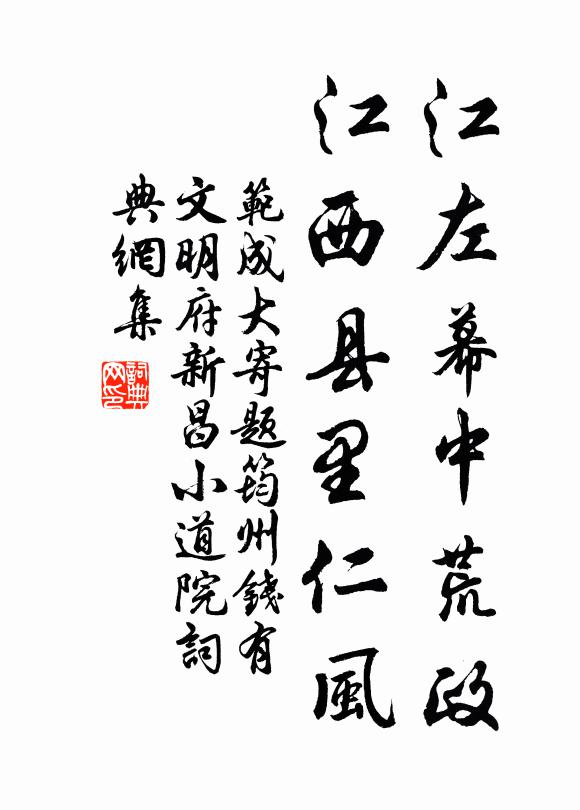 江左幕中荒政
江西县里仁風
範成大寄題筠州錢有
文明府新昌小道院詞
典網集
詞典网印